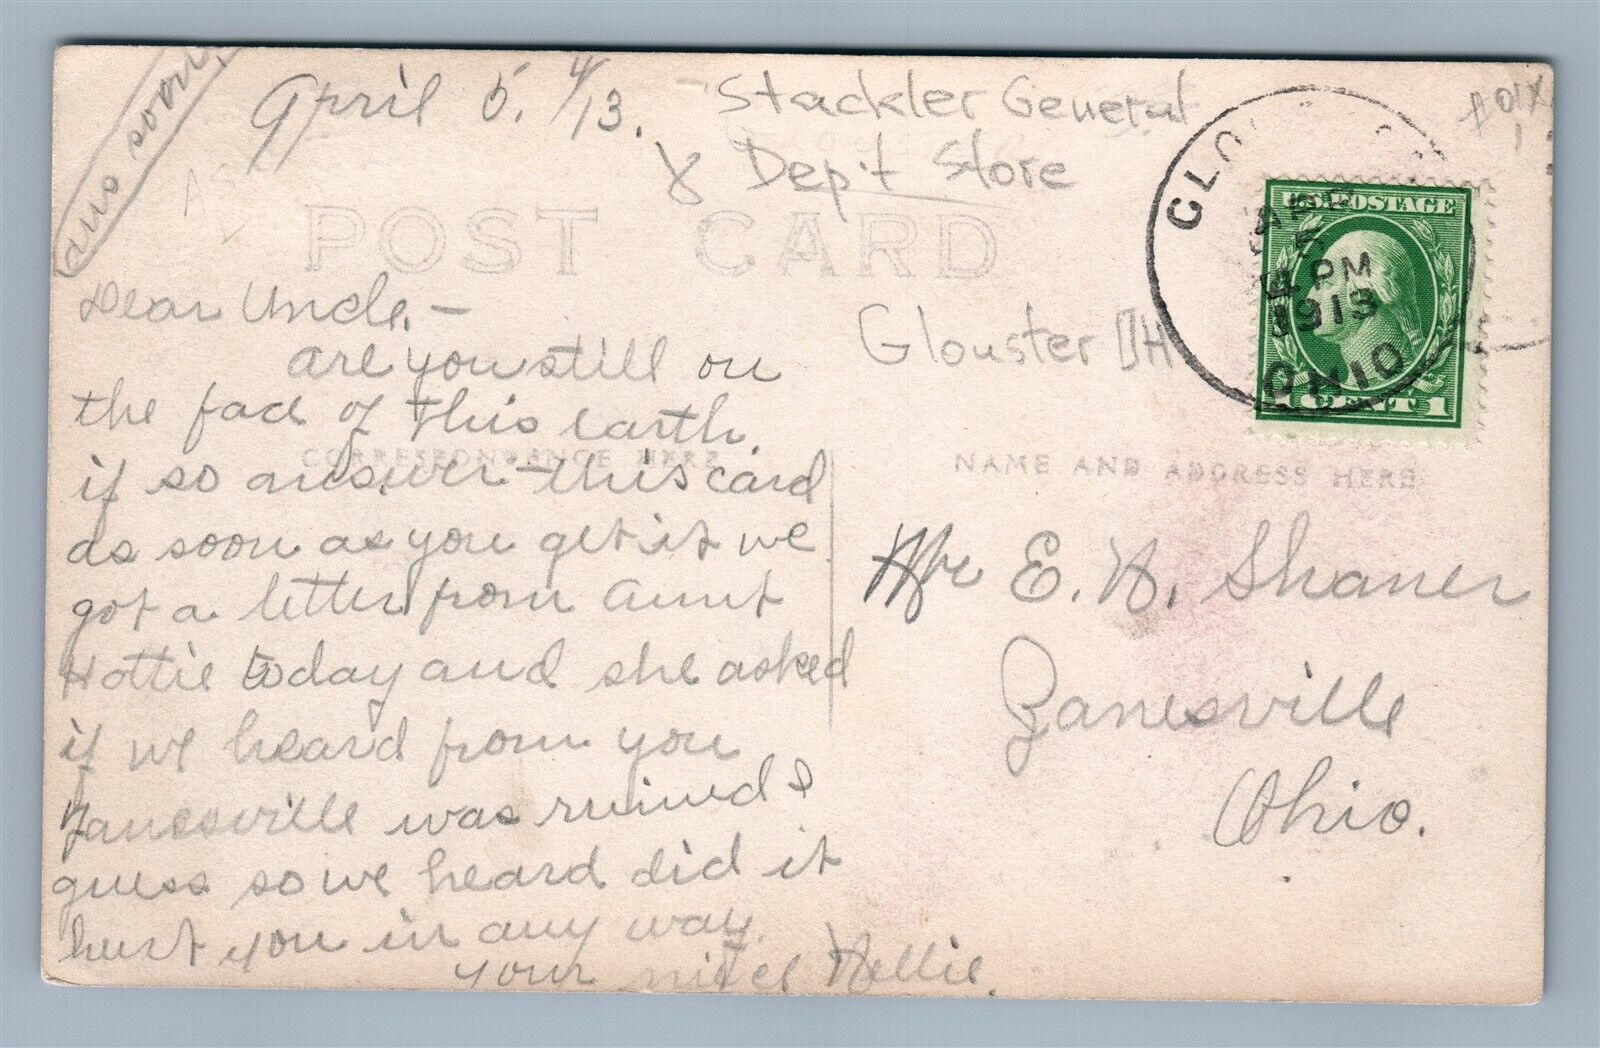 ans soon.
April 5. 4/13.
Stackler General
& Dep't Store
POST CARD
Glouster OH
GLO
APR
5
4 PM
1913
OHIO
U.S. POSTAGE
1 CENT 1
Dear Uncle.—
are you still on
the face of this earth.
if so answer this card
as soon as you get it we
got a letter from Aunt
Hattie today and she asked
if we heard from you
Zanesville was ruined I
guess so we heard did it
hurt you in any way.
your niece Nellie.
CORRESPONDENCE HERE
NAME AND ADDRESS HERE
Mr E. N. Shaner
Zanesville
Ohio.